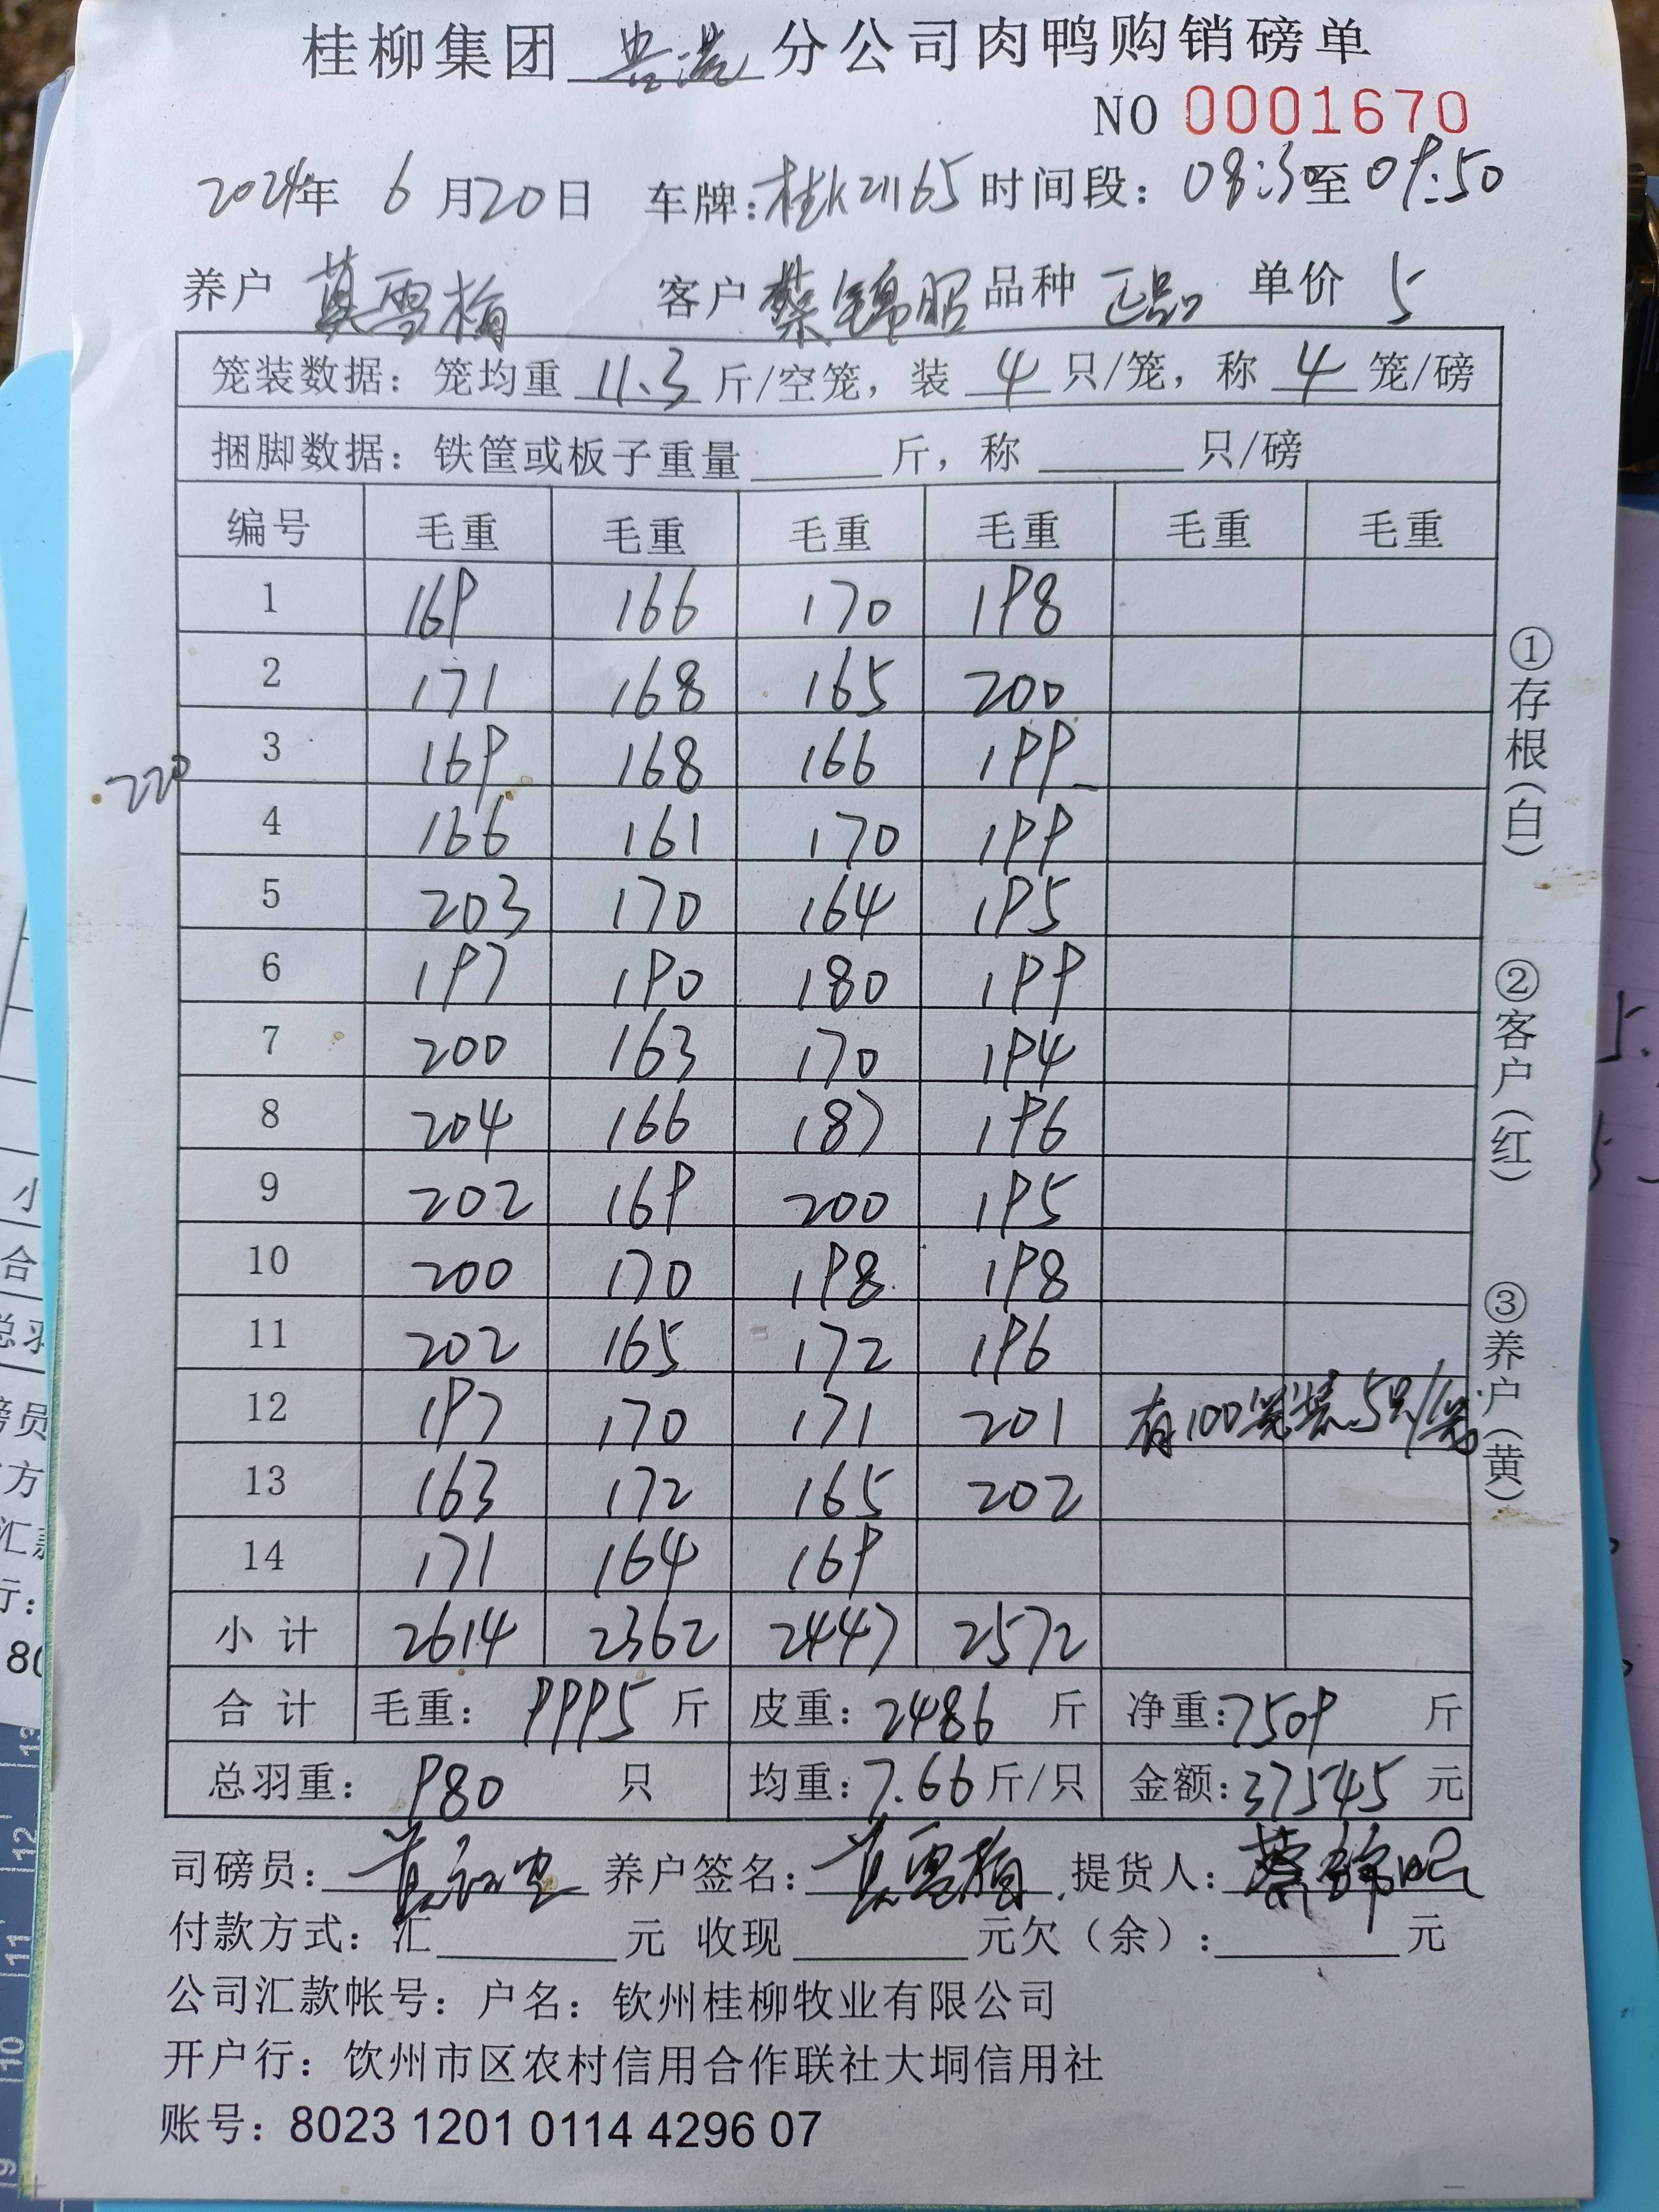 桂柳集团 贵港 分公司肉鸭购销磅单
NO 0001670
2024年 6月20日 车牌:桂K21165 时间段: 08:30至09:50
养户 莫雪梅 客户 蔡锦昭 品种 正品 单价 5
笼装数据: 笼均重 11.3 斤/空笼, 装 4 只/笼, 称 4 笼/磅
捆脚数据: 铁筐或板子重量 ______ 斤, 称 ______ 只/磅
编号 毛重 毛重 毛重 毛重 毛重 毛重
1 169 166 170 198
2 171 168 165 200
3 169 168 166 199
220
4 166 161 170 199
5 203 170 164 195
6 197 190 180 199
7 200 163 170 194
8 204 166 187 196
9 202 169 200 195
10 200 170 198 198
11 202 165 172 196
12 197 170 171 201 有100笼装5只/笼
13 163 172 165 202
14 171 164 169
小计 2614 2362 2447 2572
合计 毛重: 9995 斤 皮重: 2486 斤 净重: 7509 斤
总羽重: 980 只 均重: 7.66 斤/只 金额: 37545 元
司磅员: 养户签名: 莫雪梅 提货人: 蔡锦昭
付款方式: 汇______元 收现______元欠(余):______元
公司汇款帐号: 户名: 钦州桂柳牧业有限公司
开户行: 钦州市区农村信用合作联社大垌信用社
账号: 8023 1201 0114 4296 07
①存根(白)
②客户(红)
③养户(黄)